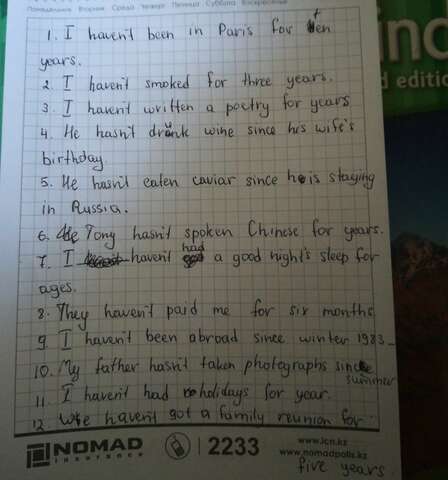 Понедельник Вторник Среда Четверг Пятница Суббота Воскресенье
1. I haven't been in Paris for ten
years.
2. I haven't smoked for three years.
3. I haven't written a poetry for years
4. He hasn't drunk wine since his wife's
birthday.
5. He hasn't eaten caviar since he is staying
in Russia.
6. Tony hasn't spoken Chinese for years.
7. I haven't had a good night's sleep for
ages.
8. They haven't paid me for six months
9. I haven't been abroad since winter 1983
10. My father hasn't taken photographs since
summer
11. I haven't had holidays for year.
12. We haven't got a family reunion for
five years.
NOMAD
insurance
2233
www.icn.kz
www.nomadpolis.kz
d editio